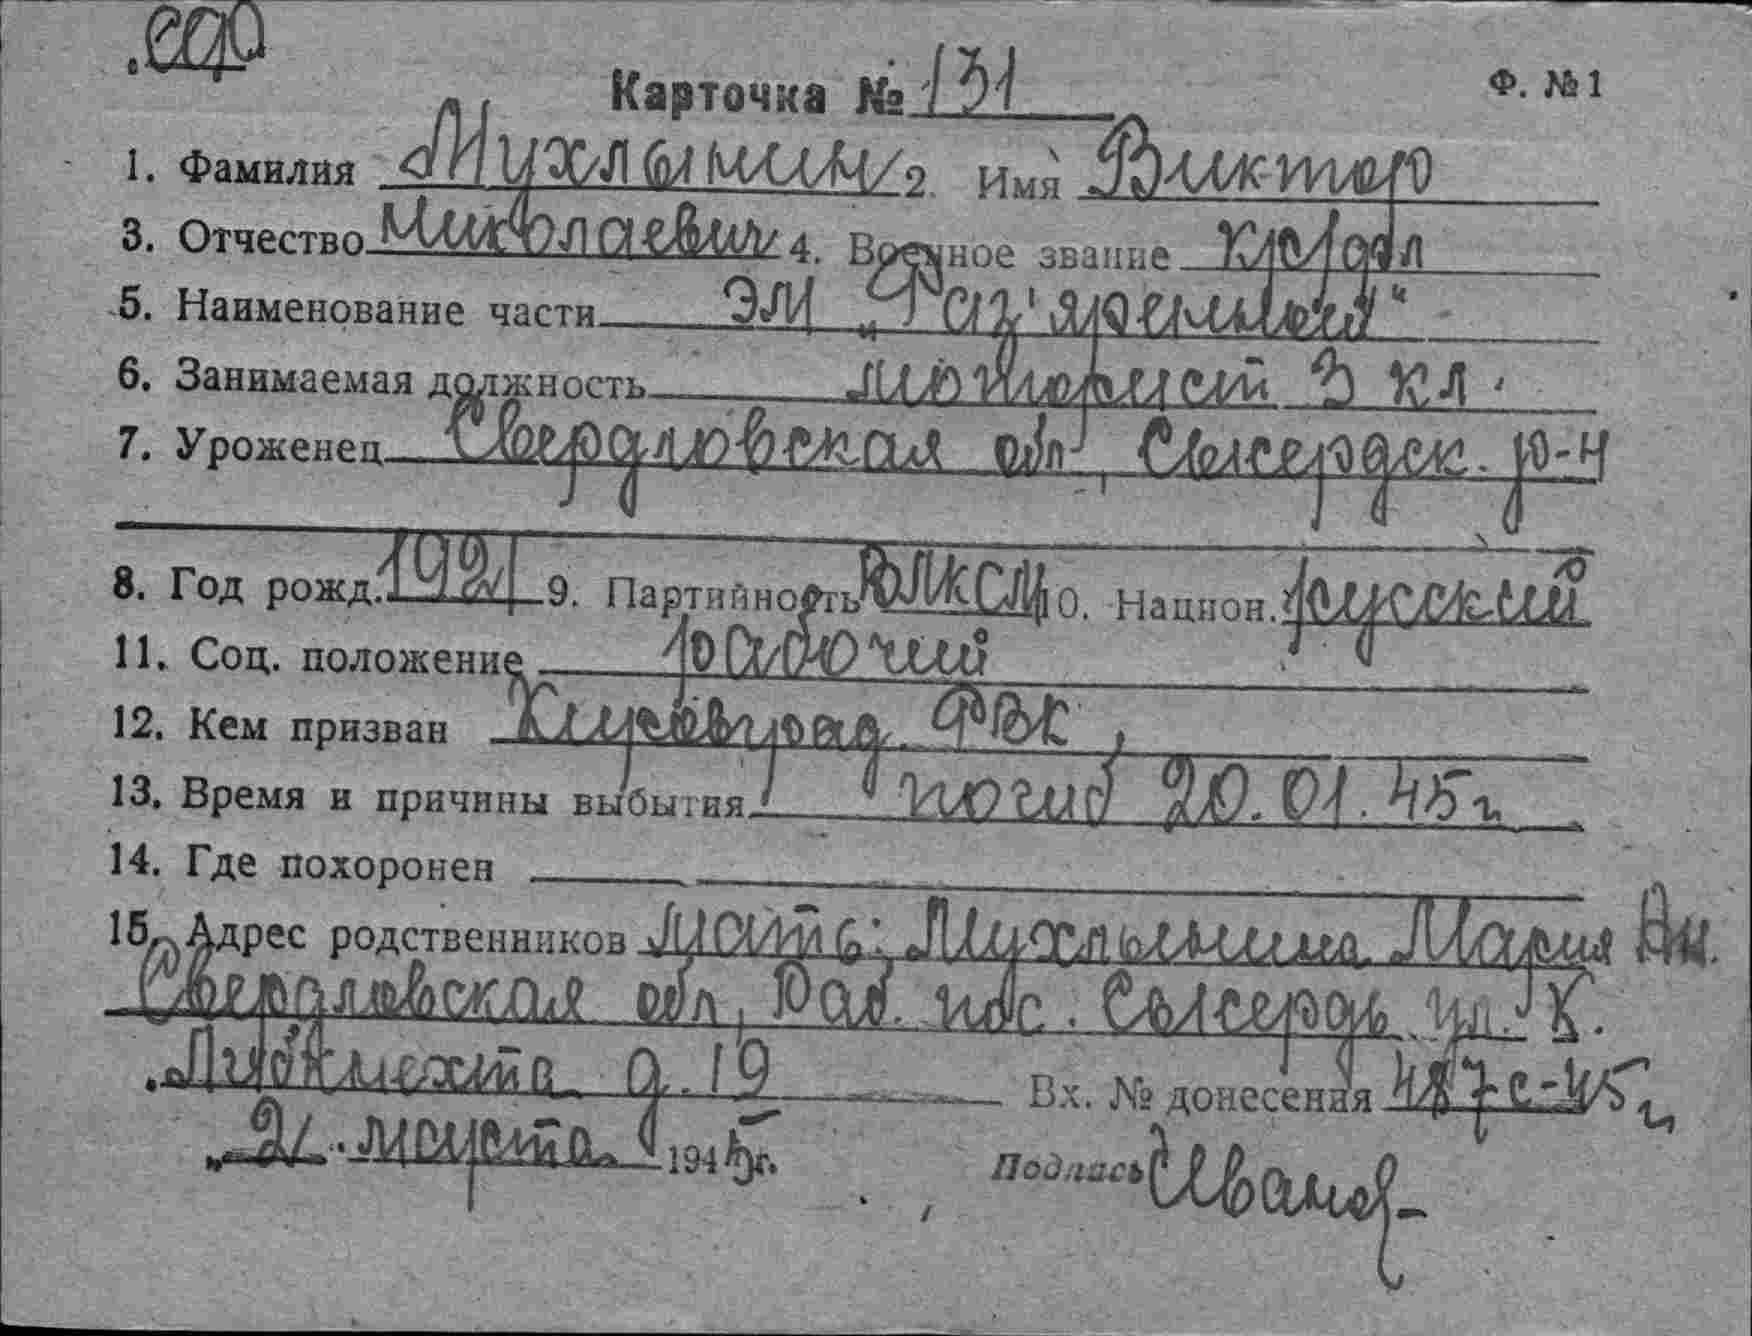 Карточка № 131 Ф. №1
1. Фамилия Мухлынин 2. Имя Виктор
3. Отчество Николаевич 4. Военное звание кр/фл
5. Наименование части ЭМ „Раз'яренный“
6. Занимаемая должность моторист 3 кл.
7. Уроженец Свердловская обл, Сысердск. р-н
8. Год рожд. 1921 9. Партийность ВЛКСМ 10. Национ. русский
11. Соц. положение рабочий
12. Кем призван Кировград. РВК
13. Время и причины выбытия погиб 20.01.45 г
14. Где похоронен
15. Адрес родственников мать: Мухлынина Мария Ан.
Свердловская обл, Раб. пос. Сысердь ул. К.
Либкнехта д. 19 Вх. № донесения 487с-45 г
„21“ марта 1945 г. Подпись Иванов